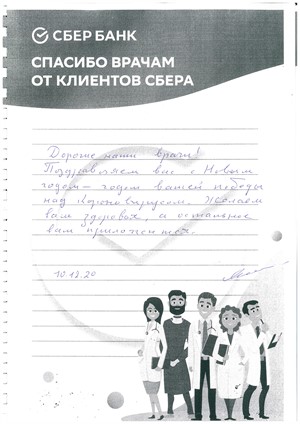 СБЕР БАНК
СПАСИБО ВРАЧАМ
ОТ КЛИЕНТОВ СБЕРА
Дорогие наши врачи!
Поздравляем вас с Новым
годом - годом вашей победы
над коронавирусом. Желаем
вам здоровья, а остальное
вам приложится.
10.12.20